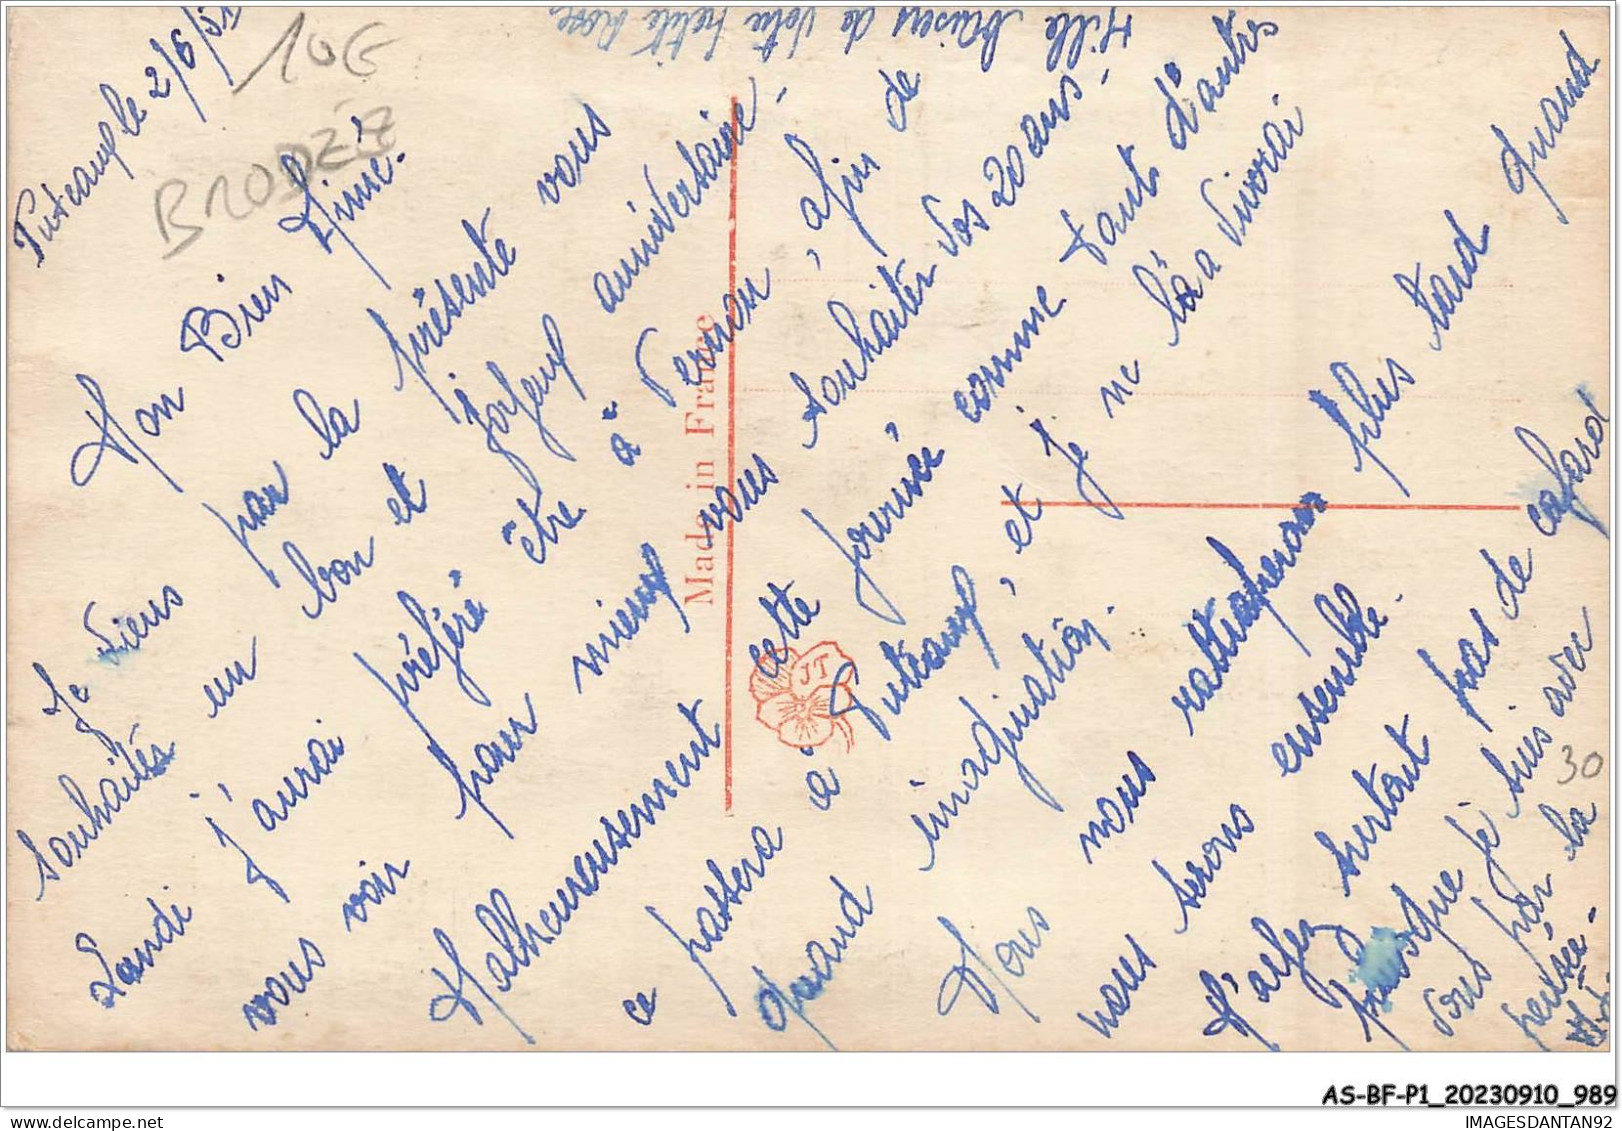 Puteaux le 2/6/51
10€
BRODÉE
Mon Bien Aimé.
Je Viens par la présente vous
souhaités un bon et joyeux anniversaire -
Lundi j'aurai préféré être à Vernon, afin de
vous voir pour mieux vous souhaiter vos 20 ans.
Malheureusement cette journée comme tant d'autres
ce passera à Puteaux, et je ne la Vivrai
quand imagination.
Nous nous rattraperons plus tard quand
nous serons ensemble.
N'ayez surtout pas de cafard
puisque je suis avec
vous par la
pensée -
Mille baisers de Votre petite Rose
Made in France
JT
30
AS-BF-P1_20230910_989
IMAGESDANTAN92